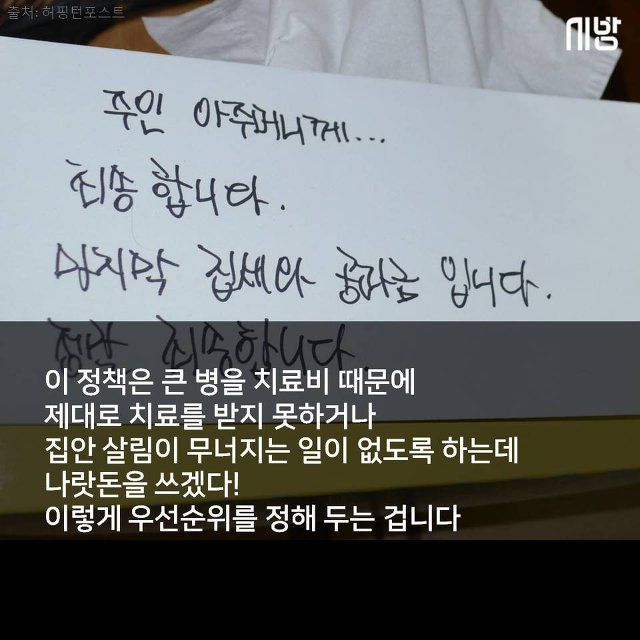 출처: 허핑턴포스트
시방
주인 아주머니께...
죄송합니다.
마지막 집세와 공과금 입니다.
정말 죄송합니다.
이 정책은 큰 병을 치료비 때문에
제대로 치료를 받지 못하거나
집안 살림이 무너지는 일이 없도록 하는데
나랏돈을 쓰겠다!
이렇게 우선순위를 정해 두는 겁니다